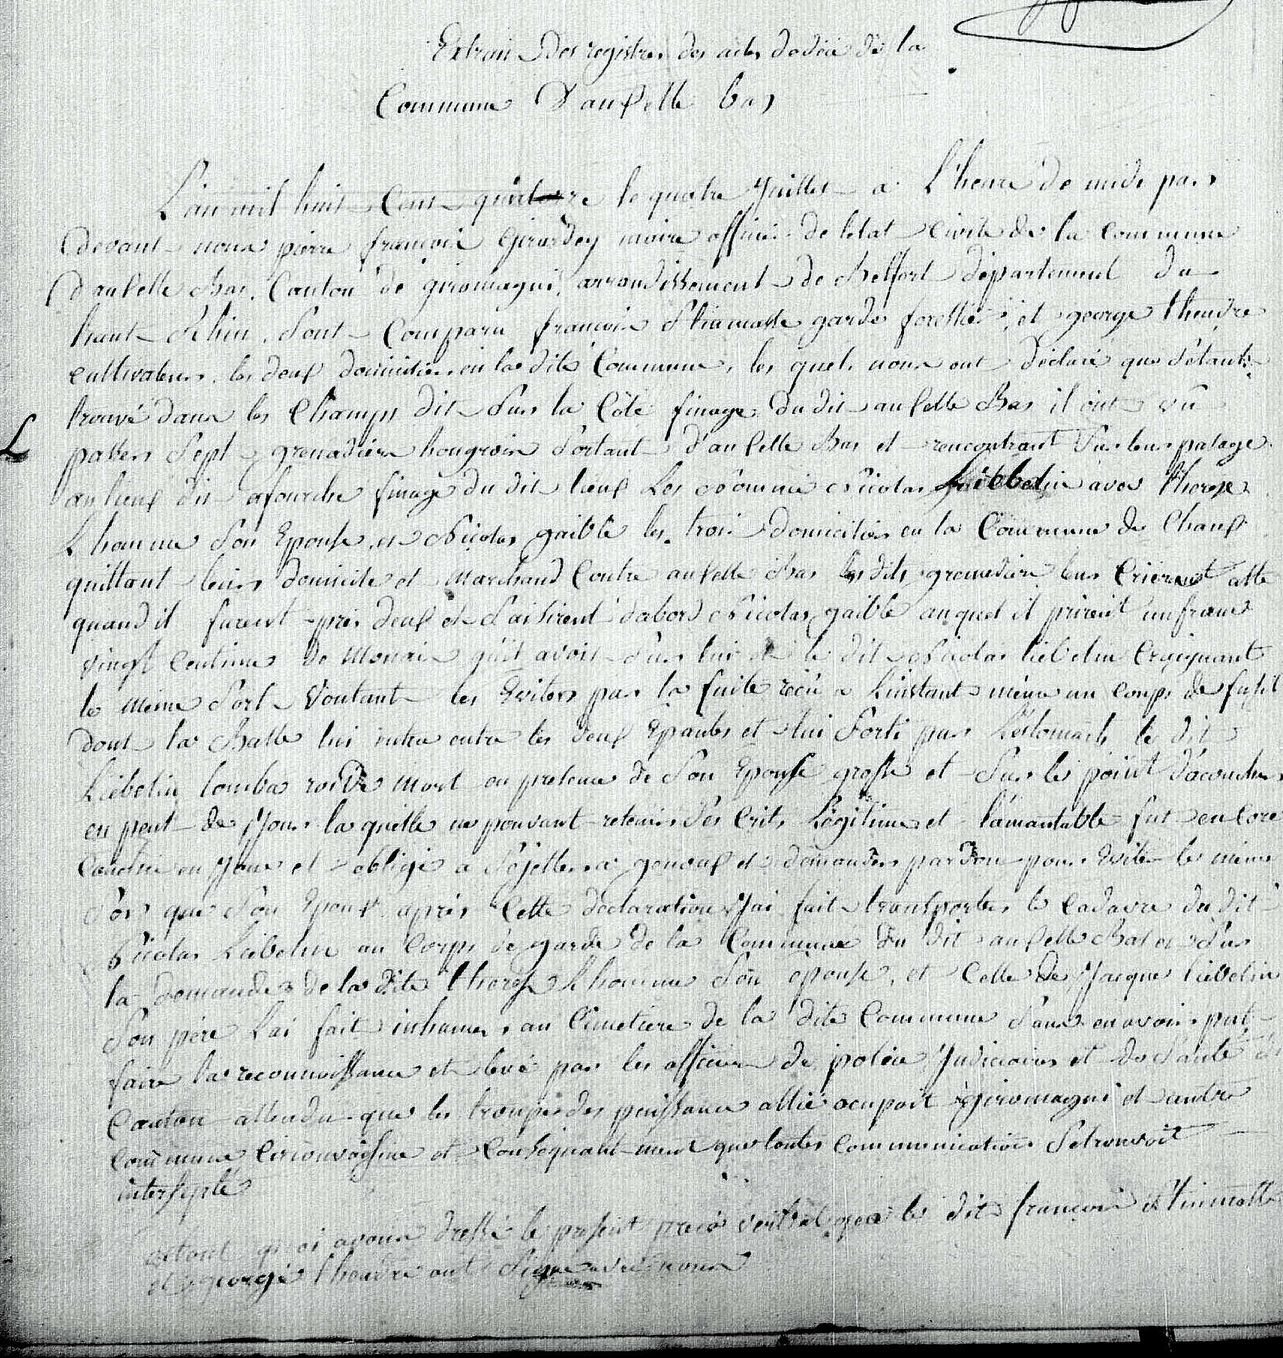 Extrait des registres des actes de décé de la
Commune d'auxelle bas
L'an mil huit Cent quatorze le quatre Juillet a L'heure de midi par
devant nous pierre françois Girardey maire officier de letat Civile de la commune
d'auxelle Bas, Canton de giromagni, arrondissement de Belfort département du
haut Rhin, Sont Comparu françois garde forestier, et george theudre
cultivateur, les deux domicilies en la dite Commune, les quels nous ont déclaré que S'étant
trouvé dans les Champs dit Sur la Côté finage du dit auxelle Bas il ont vû
passer Sept grenadiers hongrois Sortant d'auxelle Bas et rencontrant Sur leur pasage
au lieux dit afourche finage du dit lieux Les nommé Nicolas Liebelin avec Therese
Lhomme Son Epouse, et Nicolas gaible les trois domicilies en la Commune de Chaux
quittant leurs domicile et marchand Contre auxelle Bas les dits grenadiers leur Crierent alte
quand il furent près d'eux et Saisirent d'abord Nicolas gaible auquel il prirent un franc
vingt Centime de Monai qu'il avoit Sur lui et le dit Nicolas liebelin Craignant
le même Sort Voulant les Eviter par la fuite reçu a L'instant même un coups de fusil
dont la Balle lui entra entre les deux Epaules et lui Sorti par L'estomach le dit
Liebelin tomba roide mort en presence de Son Epouse grosse et Sur le point d'acoucher
en peut de Jours la quelle ne pouvant retenir Ses Crits Légitime et lamantable fut encore
en Joue et obligé a Sejetter a genoux et demander pardon pour Eviter le même
Sort que Son Epoux après Cette déclaration J'ai fait transporter le Cadavre du dit
Nicolas Liebelin au Corps de garde de la Commune du dit auxelle Bas et Sur
la demande de la dite therese Lhomme Son épouse, et Celle de Jacque liebelin
Son père Lai fait inhumer au Cimetiere de la dite Commune Sans en avoir put
faire la reconnoissance et levé par les officier de police Judiciaires et de Santé du
Canton attendu que les troupes des puissance allié ocupoit giromagni et autre
Commune Circonvoisine et Conséquament que toutes communication Setrouvoit
intersepté
de tout quoi avons dressé le present procé verbal que les dits françois
et george theudre ont Signe avec nous